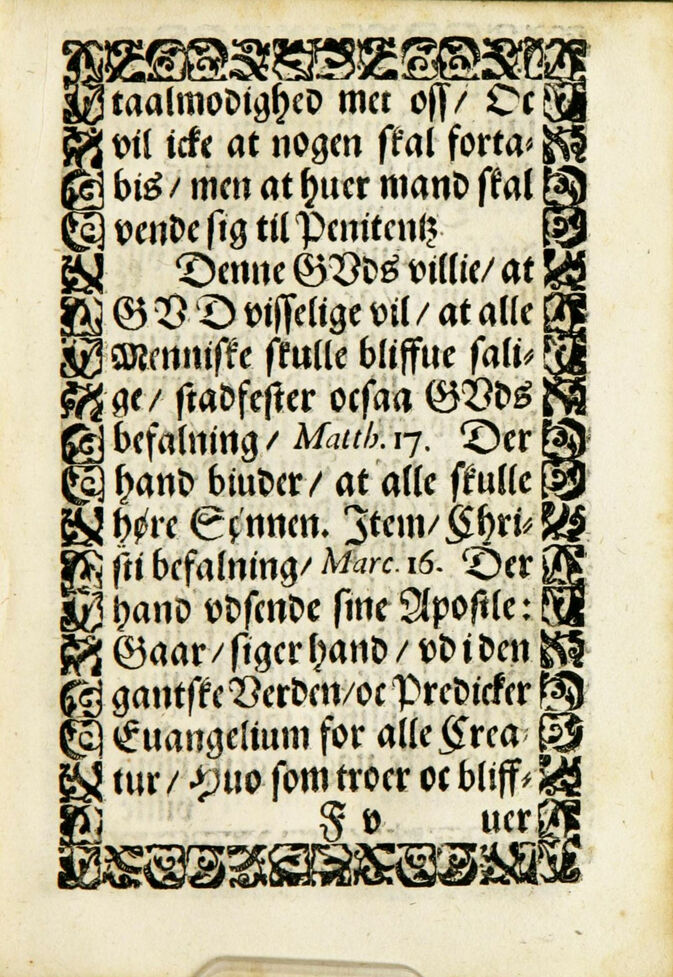 taalmodighed met oss/ Oc
vil icke at nogen skal forta-
bis / men at huer mand skal
vende sig til Penitentz
Denne GVds villie/ at
GVD visselige vil / at alle
Menniske skulle bliffue sali-
ge / stadfester ocsaa GVds
befalning / Matth. 17. Der
hand biuder / at alle skulle
høre Sønnen. Item/ Chri-
sti befalning/ Marc. 16. Der
hand vdsende sine Apostle:
Gaar / siger hand / vd i den
gantske Verden/oc Predicker
Euangelium for alle Crea-
tur / Huo som troer oc bliff-
F v uer